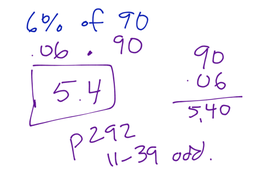 6% of 90
.06 . 90
5.4
90
.06
5.40
p292
11-39 odd.